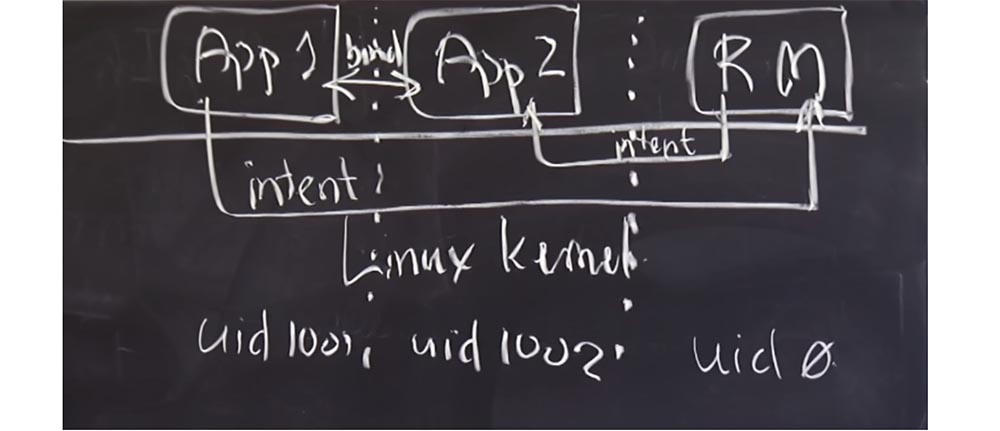 App 1 bind App 2 RM
intent
intent
Linux kernel
uid 1001 uid 1002 uid 0